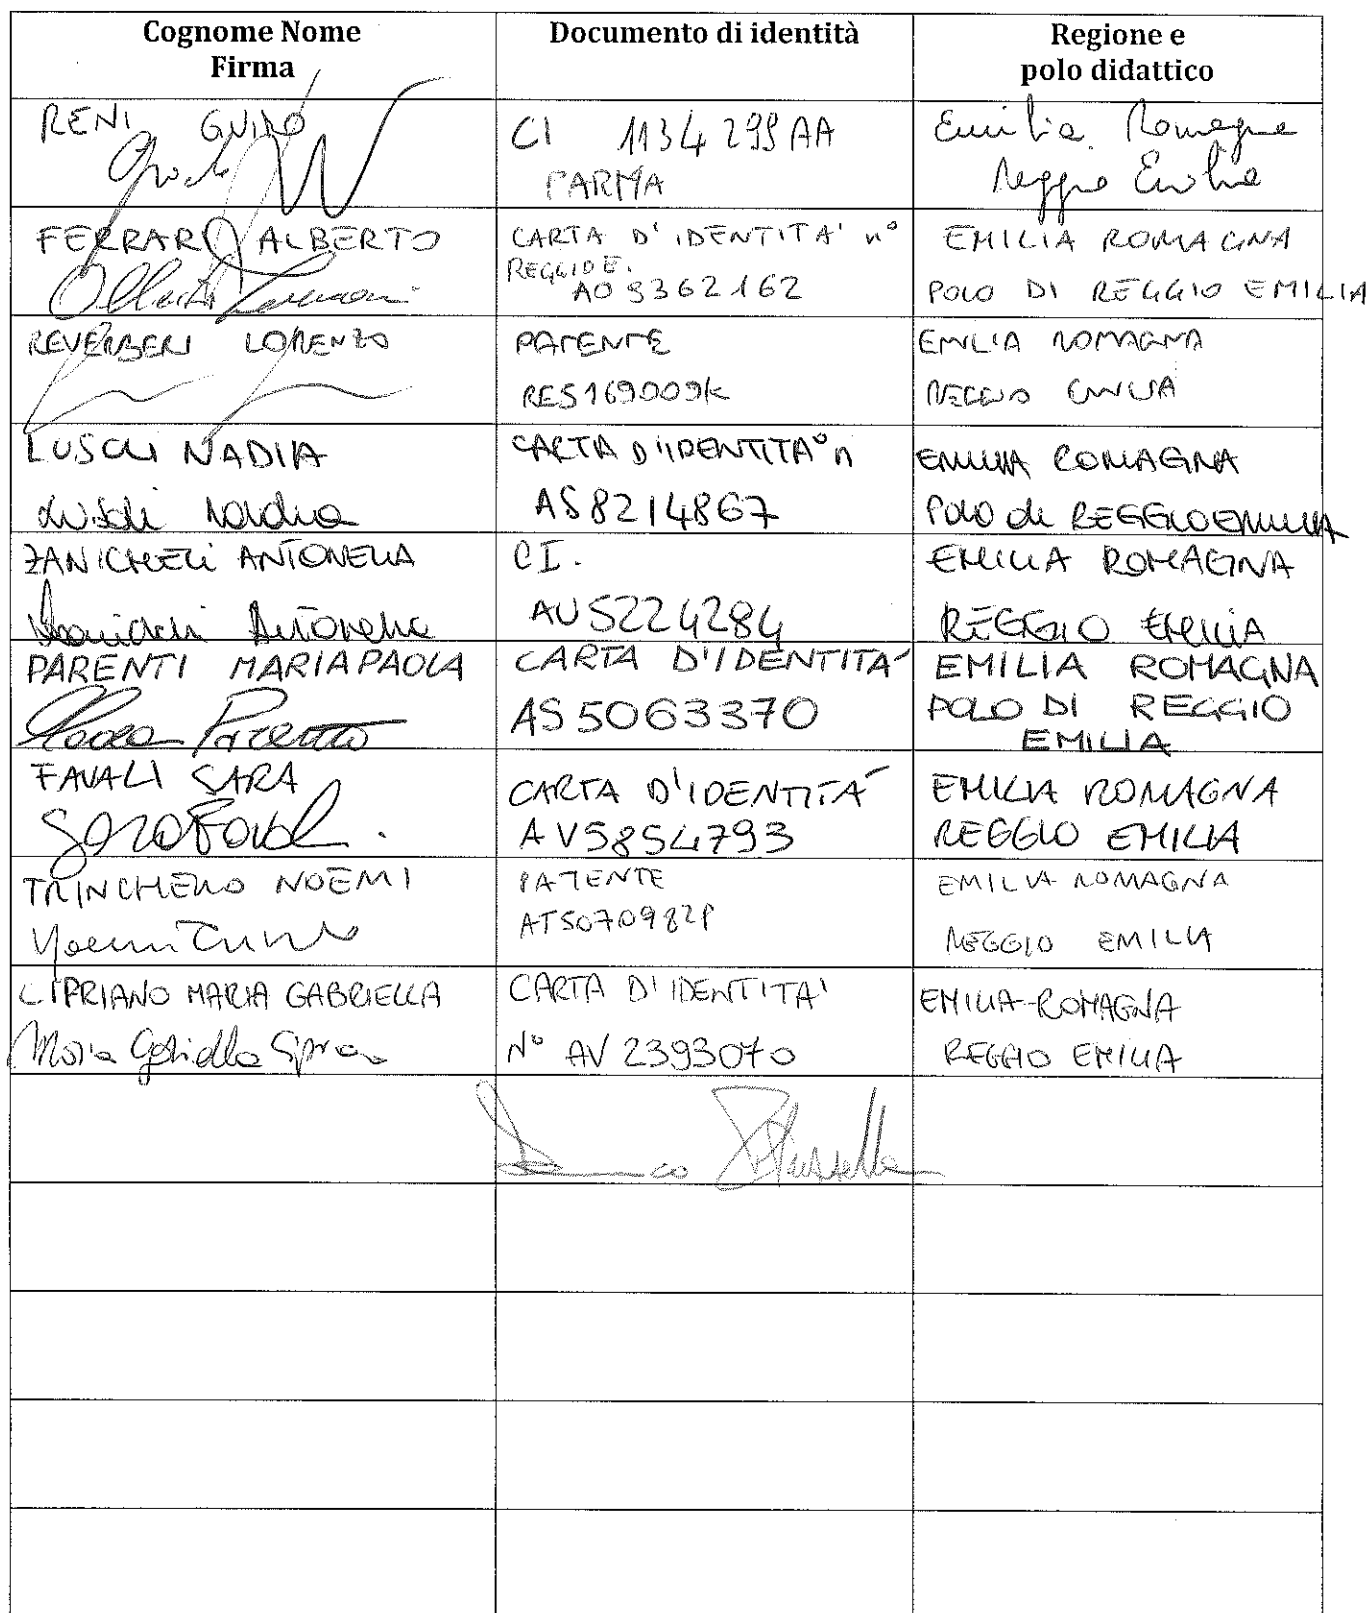 Cognome Nome
Firma
Documento di identità
Regione e
polo didattico
RENI GUIDO
CI 1134299AA
PARMA
Emilia Romagna
Reggio Emilia
FERRARI ALBERTO
CARTA D'IDENTITA' n°
REGGIO E.
AO 9362162
EMILIA ROMAGNA
POLO DI REGGIO EMILIA
REVERBERI LORENZO
PATENTE
RE5169009K
EMILIA ROMAGNA
REGGIO EMILIA
LUSCI NADIA
CARTA D'IDENTITA° n
AS8214867
EMILIA ROMAGNA
POLO di REGGIO EMILIA
ZANICHELI ANTONELLA
Antonella
C.I.
AU5224284
EMILIA ROMAGNA
REGGIO EMILIA
PARENTI MARIAPAOLA
CARTA D'IDENTITA'
AS5063370
EMILIA ROMAGNA
POLO DI REGGIO
EMILIA
FAVALI SARA
Sara Favali
CARTA D'IDENTITÁ
AV5854793
EMILIA ROMAGNA
REGGIO EMILIA
TRINCHERO NOEMI
PATENTE
AT5070982P
EMILIA ROMAGNA
REGGIO EMILIA
CIPRIANO MARIA GABRIELLA
Maria Gabriella Cipriano
CARTA D'IDENTITA'
N° AV 2393070
EMILIA-ROMAGNA
REGGIO EMILIA